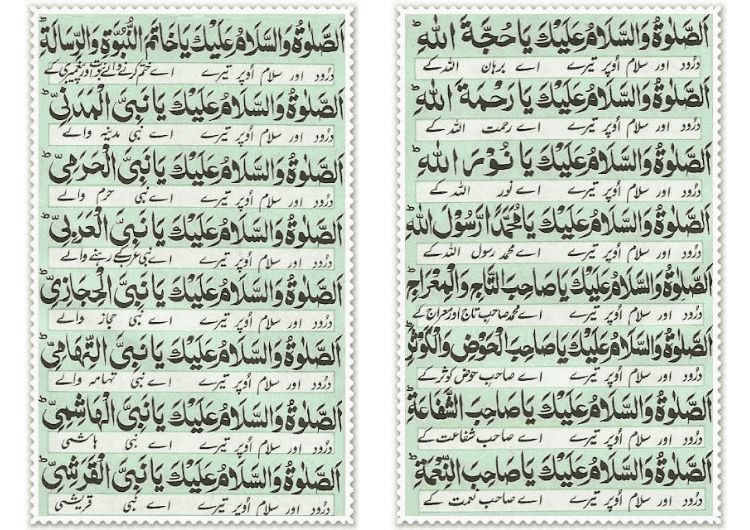 اَلصَّلٰوةُ وَالسَّلَامُ عَلَيْكَ يَا حُجَّةَ اللهِ ؕ
درُود اور سلام اُوپر تیرے اے برہان اللہ کے
اَلصَّلٰوةُ وَالسَّلَامُ عَلَيْكَ يَا رَحْمَةَ اللهِ ؕ
درُود اور سلام اُوپر تیرے اے رحمت اللہ کے
اَلصَّلٰوةُ وَالسَّلَامُ عَلَيْكَ يَا نُوْرَ اللهِ ؕ
درُود اور سلام اُوپر تیرے اے نور اللہ کے
اَلصَّلٰوةُ وَالسَّلَامُ عَلَيْكَ يَا مُحَمَّدًا رَّسُوْلَ اللهِ ؕ
درُود اور سلام اُوپر تیرے اے محمد رسول اللہ کے
اَلصَّلٰوةُ وَالسَّلَامُ عَلَيْكَ يَا صَاحِبَ التَّاجِ وَالْمِعْرَاجِ ؕ
درُود اور سلام اُوپر تیرے اے محمد صاحب تاج اور معراج کے
اَلصَّلٰوةُ وَالسَّلَامُ عَلَيْكَ يَا صَاحِبَ الْحَوْضِ وَالْكَوْثَرِ ؕ
درُود اور سلام اُوپر تیرے اے صاحب حوض کوثر کے
اَلصَّلٰوةُ وَالسَّلَامُ عَلَيْكَ يَا صَاحِبَ الشَّفَاعَةِ ؕ
درُود اور سلام اُوپر تیرے اے صاحب شفاعت کے
اَلصَّلٰوةُ وَالسَّلَامُ عَلَيْكَ يَا صَاحِبَ النِّعْمَةِ ؕ
درُود اور سلام اُوپر تیرے اے صاحب نعمت کے
اَلصَّلٰوةُ وَالسَّلَامُ عَلَيْكَ يَا خَاتَمَ النُّبُوَّةِ وَالرِّسَالَةِ ؕ
درُود اور سلام اُوپر تیرے اے ختم کرنے والے نبوت اور پیغمبری کے
اَلصَّلٰوةُ وَالسَّلَامُ عَلَيْكَ يَا نَبِىَّ الْمَدَنِىِّ ؕ
درُود اور سلام اُوپر تیرے اے نبی مدینہ والے
اَلصَّلٰوةُ وَالسَّلَامُ عَلَيْكَ يَا نَبِىَّ الْحَرَمِىِّ ؕ
درُود اور سلام اُوپر تیرے اے نبی حرم والے
اَلصَّلٰوةُ وَالسَّلَامُ عَلَيْكَ يَا نَبِىَّ الْعَرَبِىِّ ؕ
درُود اور سلام اُوپر تیرے اے نبی عرب کے رہنے والے
اَلصَّلٰوةُ وَالسَّلَامُ عَلَيْكَ يَا نَبِىَّ الْحِجَازِىِّ ؕ
درُود اور سلام اُوپر تیرے اے نبی حجاز والے
اَلصَّلٰوةُ وَالسَّلَامُ عَلَيْكَ يَا نَبِىَّ التِّهَامِىِّ ؕ
درُود اور سلام اُوپر تیرے اے نبی تہامہ والے
اَلصَّلٰوةُ وَالسَّلَامُ عَلَيْكَ يَا نَبِىَّ الْهَاشِمِىِّ ؕ
درُود اور سلام اُوپر تیرے اے نبی ہاشمی
اَلصَّلٰوةُ وَالسَّلَامُ عَلَيْكَ يَا نَبِىَّ الْقُرَيْشِىِّ ؕ
درُود اور سلام اُوپر تیرے اے نبی قریشی